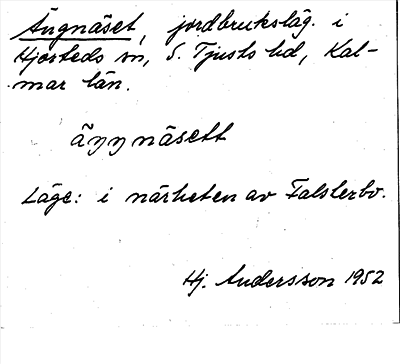 Ängnäset, jordbruksläg. i
Hjorteds sn, S. Tjusts hd, Kal-
mar län.
äŋŋnäsett
Läge: i närheten av Falsterbo.
Hj. Andersson 1952